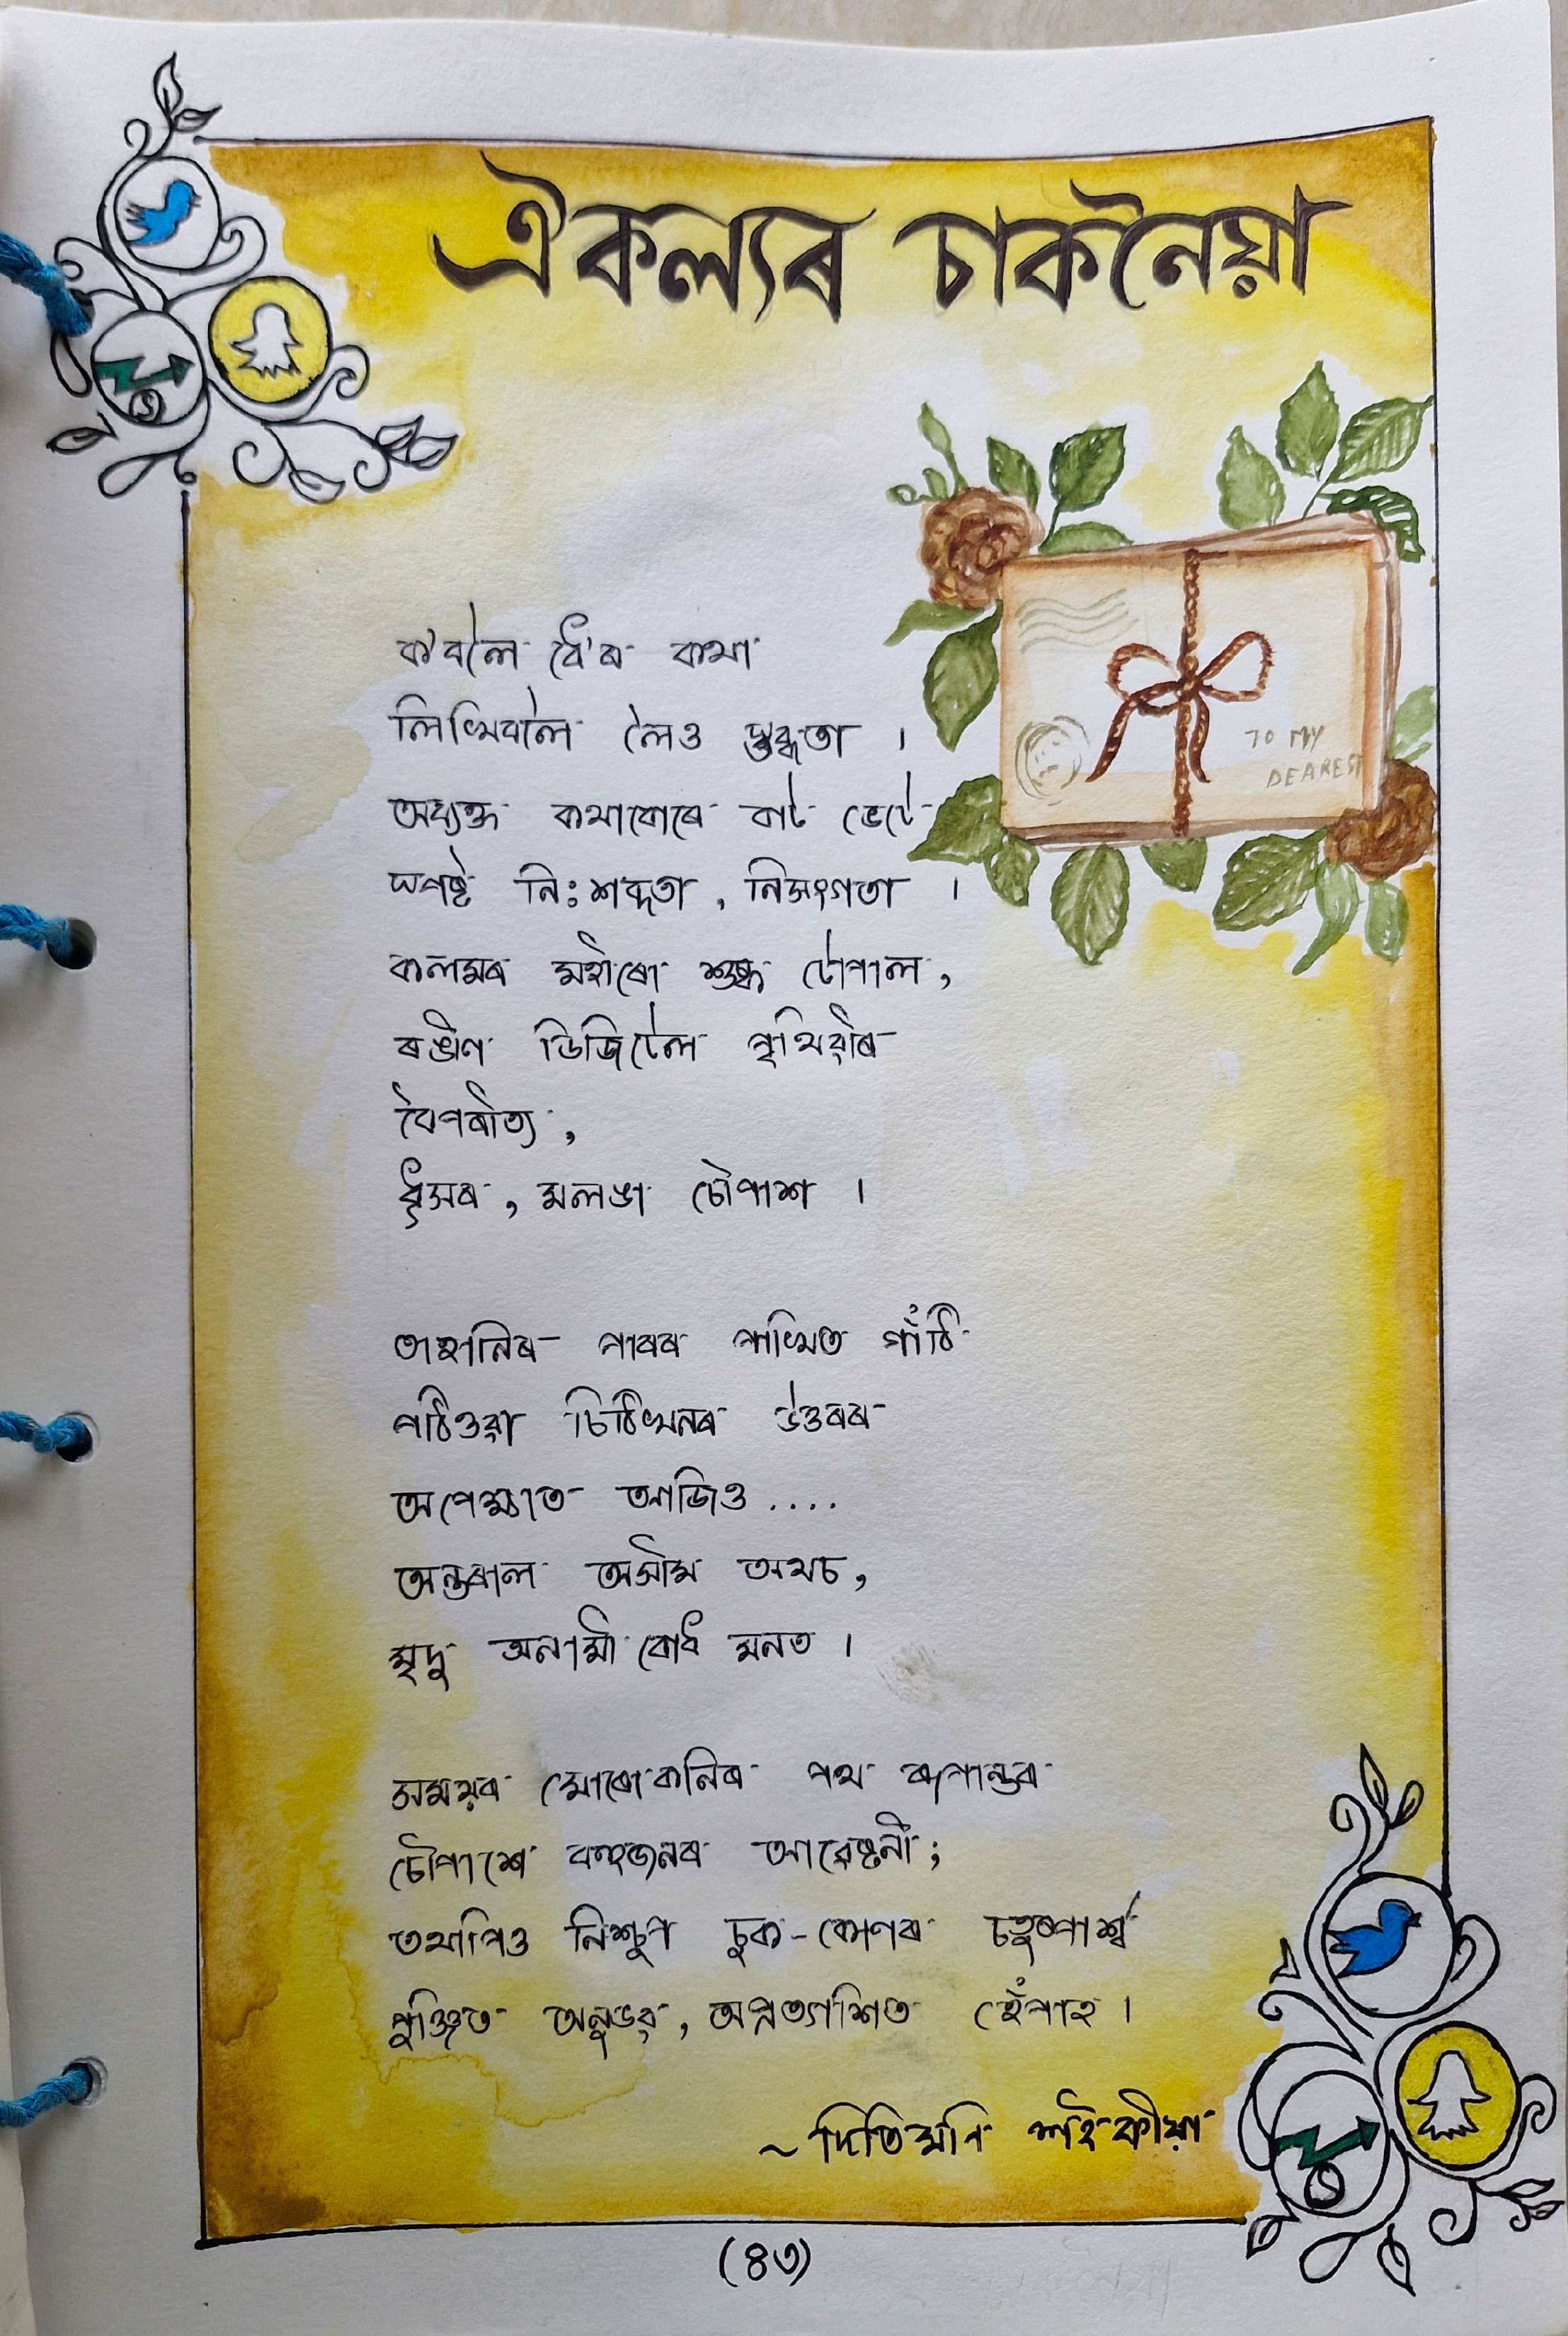 ঐকল্যৰ চাকনৈয়া
TO MY
DEAREST
ক'বলৈ ৰৈ'ৰ কথা
লিখিবলৈ লৈও স্তব্ধতা ।
অব্যক্ত কথাবোৰে বাট ভেটে
স্পষ্ট নিঃশব্দতা , নিসংগতা ।
কলমৰ মহীৰো শুষ্ক টোপাল ,
ৰঙীণ ডিজিটেল পৃথিৱীৰ
বৈপৰীত্য ,
ধূসৰ , মলঙা চৌপাশ ।
তাহানিৰ পাৰৰ পাখিত গাঁঠি
পঠিওৱা চিঠিখনৰ উত্তৰৰ
অপেক্ষাত আজিও ....
অন্তৰাল অসীম অথচ ,
মৃদু অনামী বোধ মনত ।
সময়ৰ মোৰোকনিৰ পথ ৰূপান্তৰ
চৌপাশে বহুজনৰ আৱেষ্টনী ;
তথাপিও নিশ্চুপ চুক-কোণৰ চতুষ্পাৰ্শ্ব
পুঞ্জিত অনুভৱ , অপ্ৰত্যাশিত হেঁপাহ ।
~ দিতিমণি শইকীয়া
(৪৩)